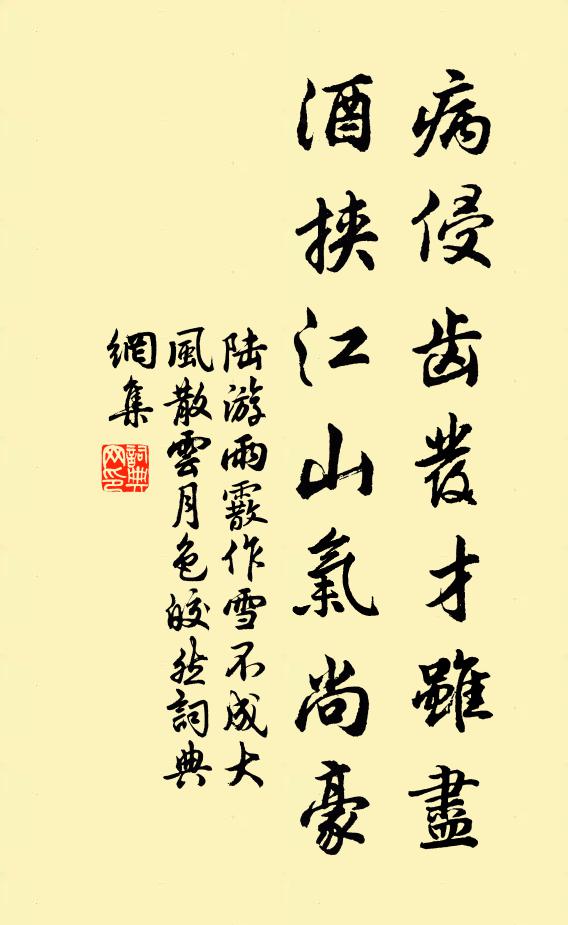 病侵齿發才雖盡
酒挾江山氣尚豪
陆游雨霰作雪不成大
風散雲月色皎然詞典
網集
詞典
网印